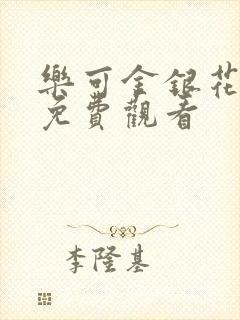 樂可金銀花
免費觀看
李隆基